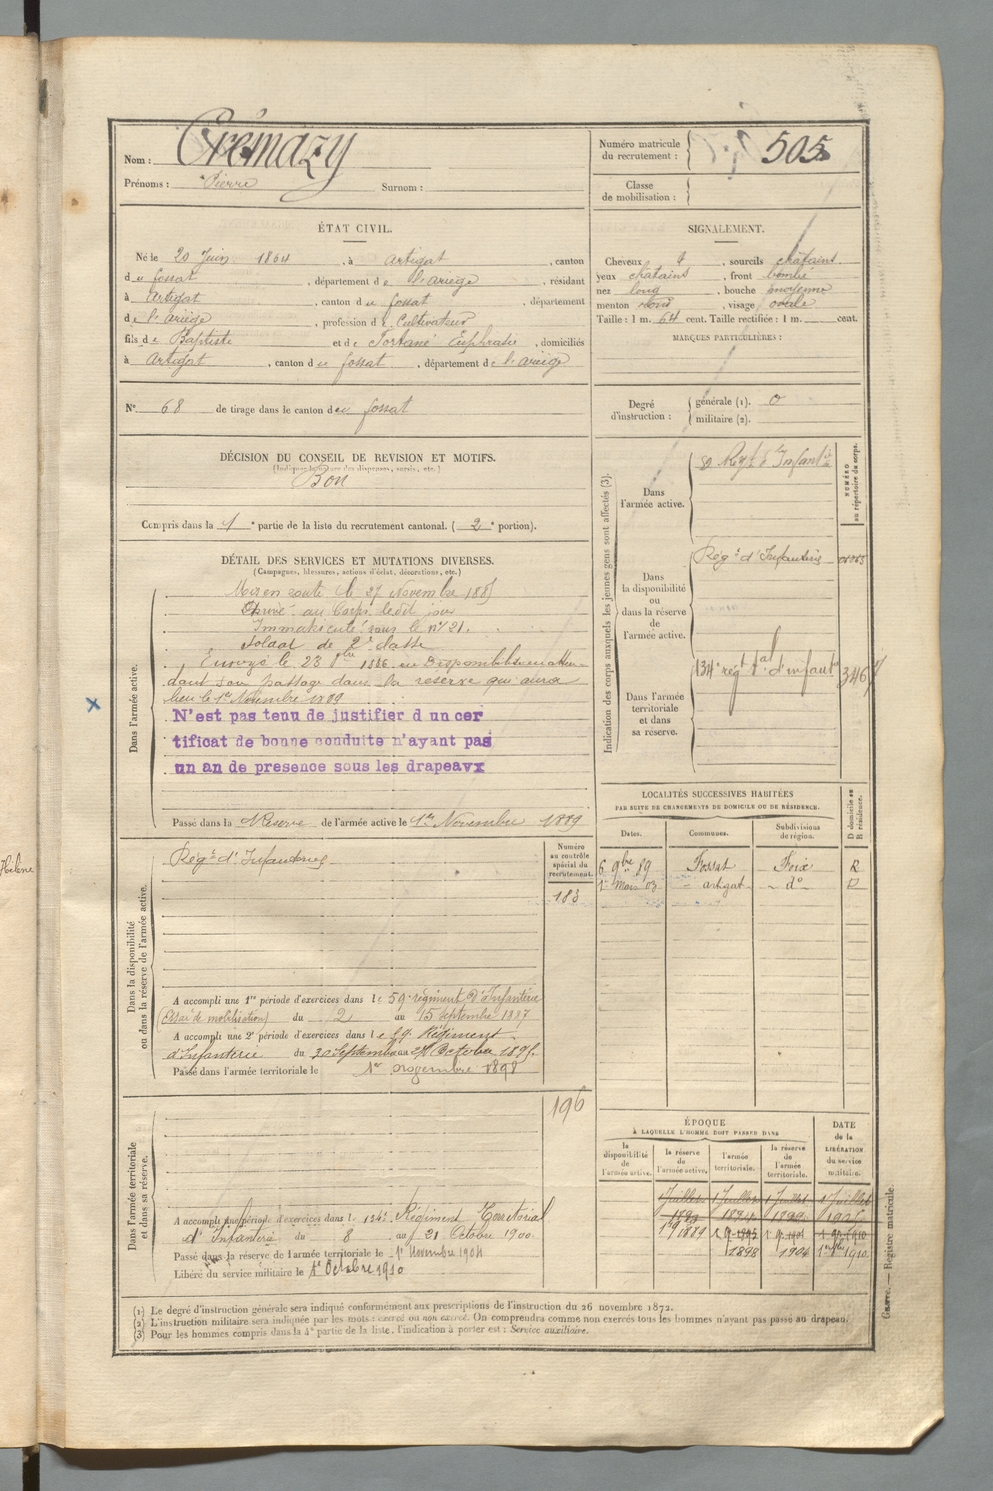 Nom : Crémazy
Prénoms : Pierre Surnom :
Numéro matricule
du recrutement : 505
Classe
de mobilisation :
ÉTAT CIVIL.
Né le 20 Juin 1864, à Artigat, canton
du fossat, département de l'ariège, résidant
à Artigat, canton du fossat, département
de l'ariège, profession de Cultivateur
fils de Baptiste et de Euphrasie, domiciliés
à Artigat, canton du fossat, département de l'ariège
N° 68 de tirage dans le canton du fossat
SIGNALEMENT.
Cheveux , sourcils chatains.
yeux chatains, front bombé
nez long, bouche moyenne
menton rond, visage ovale
Taille : 1 m. 64 cent. Taille rectifiée : 1 m. cent.
MARQUES PARTICULIÈRES :
Degré
d'instruction :
générale (1). 0
militaire (2).
DÉCISION DU CONSEIL DE REVISION ET MOTIFS.
(Indiquer la nature des dispenses, sursis, etc.)
Bon
Compris dans la 1e partie de la liste du recrutement cantonal. (2e portion).
DÉTAIL DES SERVICES ET MUTATIONS DIVERSES.
(Campagnes, blessures, actions d'éclat, décorations, etc.)
Dans l'armée active.
Mis en route le 27 Novembre 1885
Arrivé au Corps le dit jour
Immatriculé sous le n°
Soldat de 2e classe
Envoyé le 23 1886 en Disponibilité en atten-
dant son passage dans la réserve qui aura
lieu le 1er Novembre 1889
N'est pas tenu de justifier d un cer
tificat de bonne conduite n'ayant pas
un an de presence sous les drapeaux
Passé dans la Réserve de l'armée active le 1er Novembre 1889
Indication des corps auxquels les jeunes gens sont affectés (3).
NUMÉRO
au répertoire du corps.
Dans
l'armée active.
Régt d'Infanterie
Dans
la disponibilité
ou
dans la réserve
de
l'armée active.
Régt d'Infanterie
Dans l'armée
territoriale
et dans
sa réserve.
134e régt tal d'infant
LOCALITÉS SUCCESSIVES HABITÉES
PAR SUITE DE CHANGEMENTS DE DOMICILE OU DE RÉSIDENCE.
Dates. Communes. Subdivisions
de région. D domicile ou
R résidence.
6 9bre 89 Fossat Foix R
1er Mars 03 artigat do D
Dans la disponibilité
ou dans la réserve de l'armée active.
Régt d'Infanterie
Numéro
au contrôle
spécial du
recrutement.
183
A accompli une 1re période d'exercices dans le 59e régiment d'Infanterie
(Essai de mobilisation) du 2 au 15 septembre 1887
A accompli une 2e période d'exercices dans le 59e Régiment
d'Infanterie du 30 Septembre au 27 Octobre 1895.
Passé dans l'armée territoriale le 1er novembre 1898
196
Dans l'armée territoriale
et dans sa réserve.
A accompli une période d'exercices dans le 134e Régiment Territorial
d'Infanterie du 8 au 21 Octobre 1900.
Passé dans la réserve de l'armée territoriale le 1er Novembre 1904
Libéré du service militaire le 1er Octobre 1910
ÉPOQUE
À LAQUELLE L'HOMME DOIT PASSER DANS
DATE
de la
LIBÉRATION
du service
militaire.
la
disponibilité
de
l'armée active.
la réserve
de
l'armée active.
l'armée
territoriale.
la réserve
de
l'armée
territoriale.
1 Juillet 1 Juillet 1 Juillet 1 Juillet
1889
1898 1904 1910
(1) Le degré d'instruction générale sera indiqué conformément aux prescriptions de l'instruction du 26 novembre 1872.
(2) L'instruction militaire sera indiquée par les mots : exercé ou non exercé. On comprendra comme non exercés tous les hommes n'ayant pas passé au drapeau.
(3) Pour les hommes compris dans la 4e partie de la liste, l'indication à porter est : Service auxiliaire.
Registre matricule.